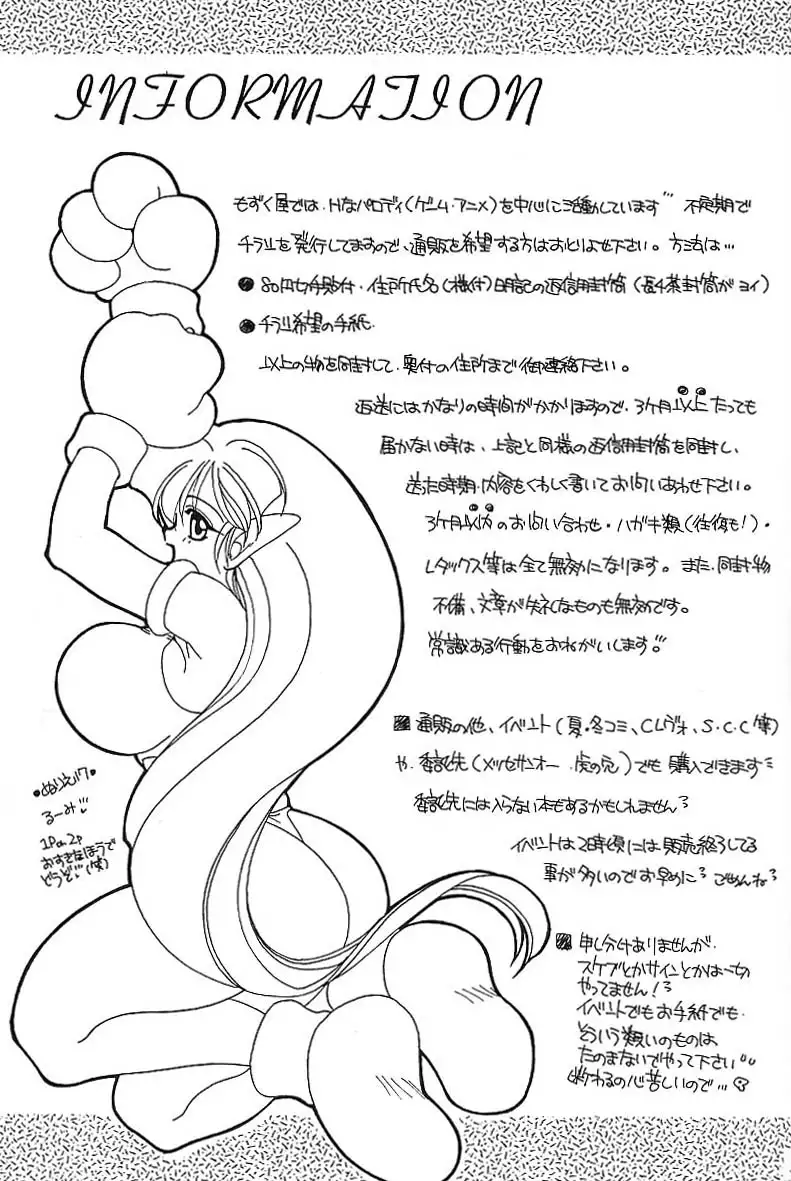 INFORMATION
もずく屋では、Hなパロディ(ゲーム・アニメ)を中心に活動しています… 不定期で
チラシを発行してますので、通販を希望する方はおとりよせ下さい。方法は…
●80円切手貼付・住所氏名(様付)明記の返信用封筒(長4茶封筒がヨイ)
●チラシ希望の手紙
以上の物を同封して、奥付の住所まで御連絡下さい。
返送にはかなりの時間がかかりますので、3ケ月以上たっても
届かない時は、上記と同様の返信用封筒を同封し、
送った時期・内容をくわしく書いてお問いあわせ下さい。
3ケ月以内のお問い合わせ・ハガキ類(往復も!)・
Lタックス等は全て無効になります。また、同封物
不備、文章が失礼なものも無効です。
常識ある行動をおねがいします!!
通販の他、イベント(夏・冬コミ、Cレヴォ、S.C.C等)
や、委託先(メッセサンオー、虎の穴)でも購入できます
委託先には入らない本もあるかもしれません
イベントは2時頃には販売終了してる
事が多いのでお早めに ごめんね
申し分けありませんが、
スケブとかサインとかは一切
やってません!
イベントでもお手紙でも、
そういう類いのものは
たのまないでやって下さい
断わるの心苦しいので…
●ぬりえ17●
るーみぃ
1Pか2P
おすきなほうで
どうぞ(笑)